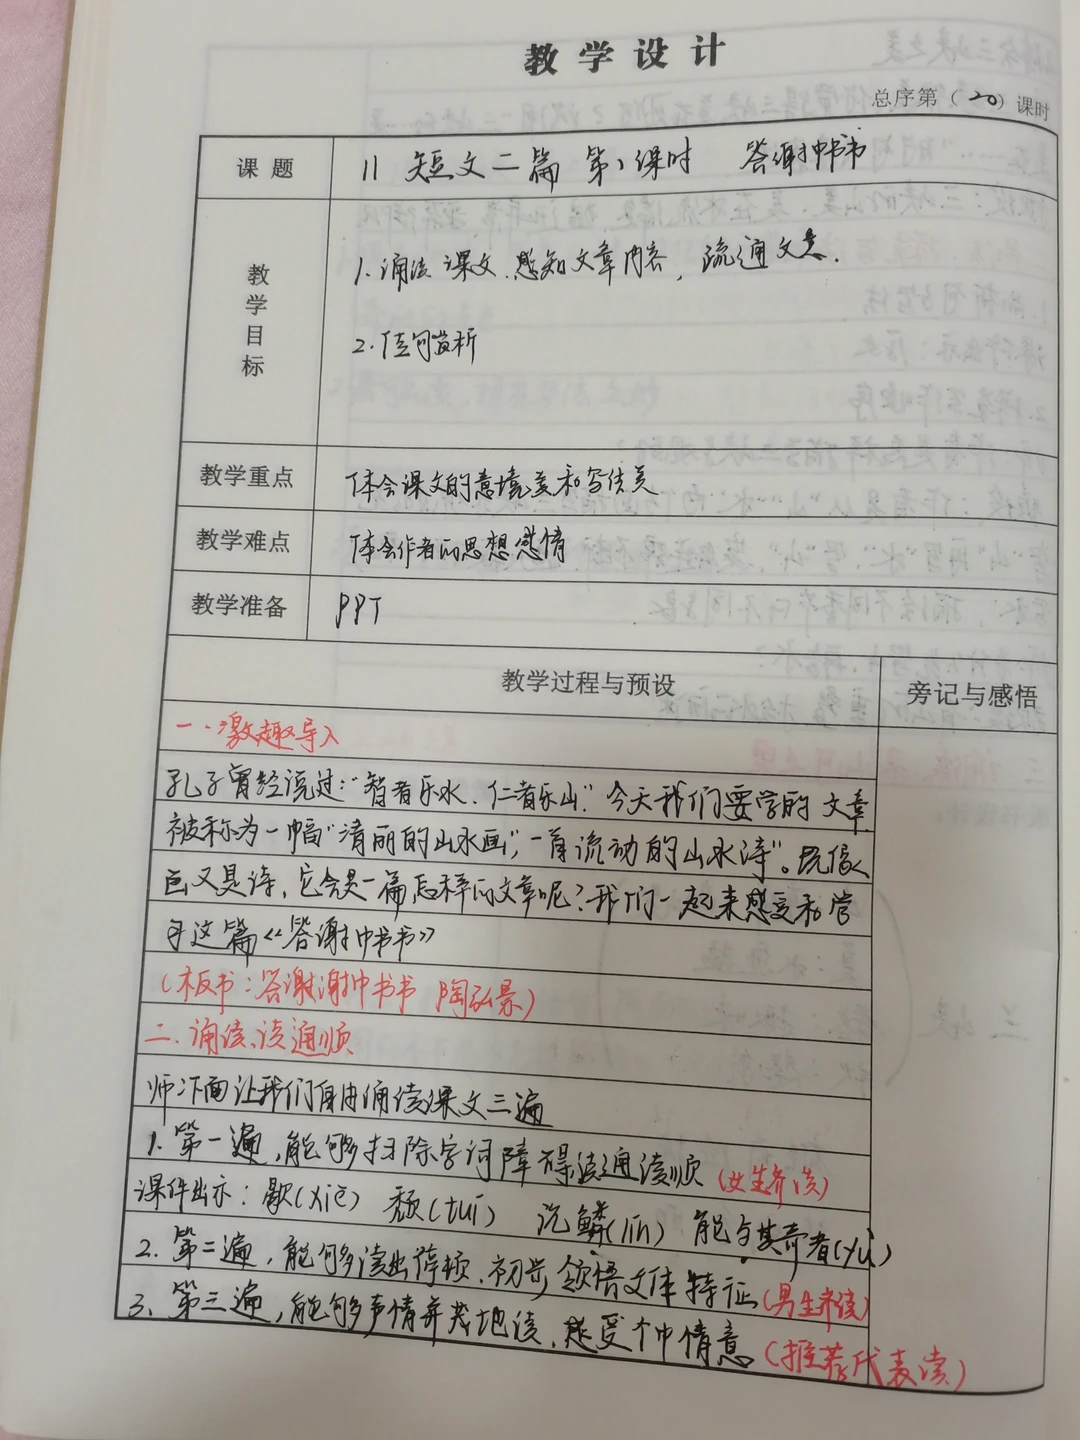 教学设计
总序第（20）课时
课题 11 短文二篇 第1课时 答谢中书书
教学目标
1. 诵读课文，感知文章内容，疏通文意.
2. 佳句赏析
教学重点 体会课文的意境美和写法美
教学难点 体会作者的思想感情
教学准备 PPT
教学过程与预设 旁记与感悟
一. 激趣导入
孔子曾经说过:"智者乐水、仁者乐山." 今天我们要学的文章
被称为一幅"清丽的山水画","一首流动的山水诗"。既像
画又是诗，它会是一篇怎样的文章呢?我们一起来感受和学
习这篇《答谢中书书》
(板书:答谢谢中书书 陶弘景)
二. 诵读、读通顺
师:下面让我们自由诵读课文三遍
1. 第一遍，能够扫除字词障碍读通读顺(女生齐读)
课件出示: 歇(xiē) 颓(tuí) 沉鳞(lín) 能与其奇者(yù)
2. 第二遍，能够读出停顿、初步领悟文体特征(男生齐读)
3. 第三遍，能够声情并茂地读，感受个中情意(推荐代表读)